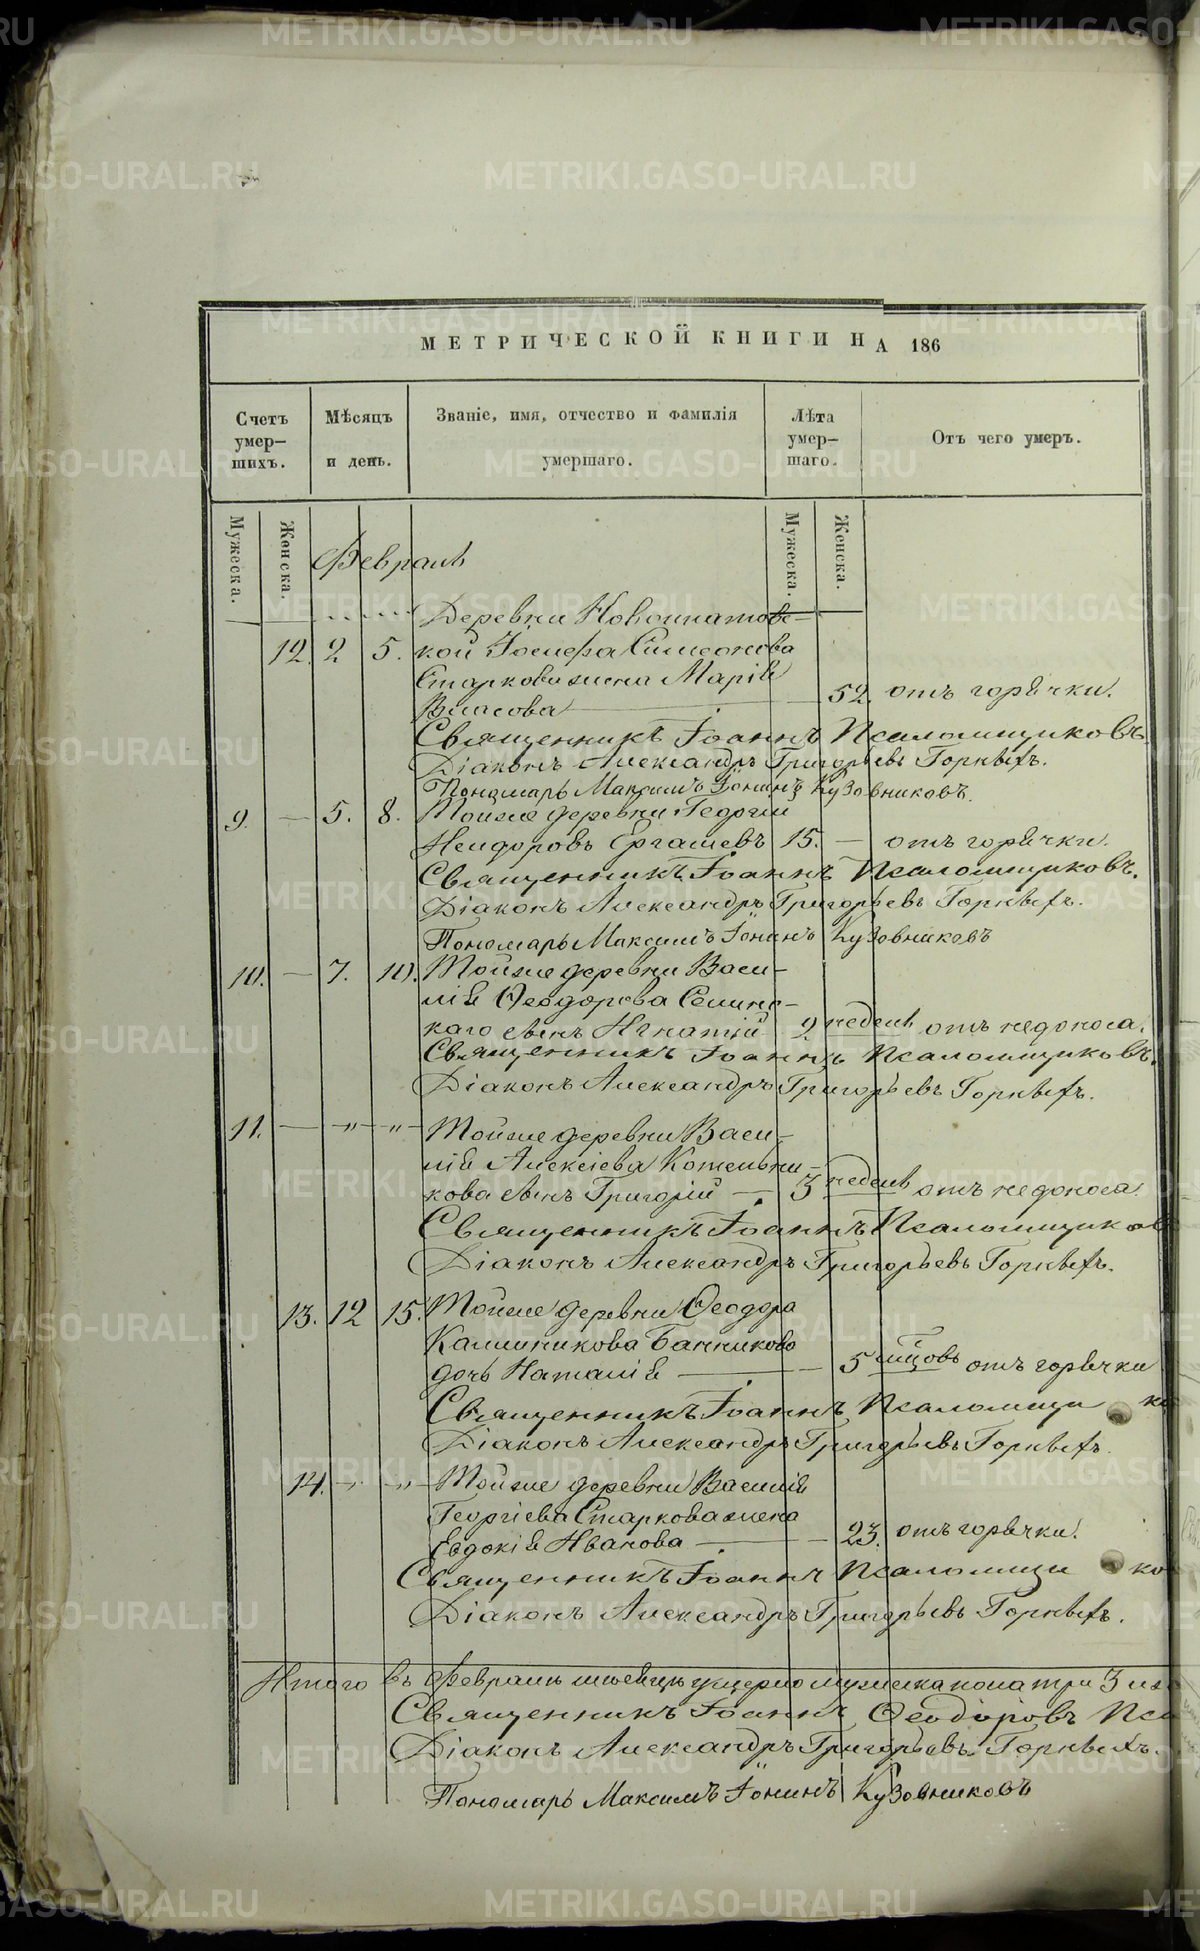 МЕТРИЧЕСКОЙ КНИГИ НА 186
Счетъ умер-шихъ.
Мѣсяцъ и день.
Званіе, имя, отчество и фамилія умершаго.
Лѣта умер-шаго.
Отъ чего умеръ.
Мужеска.
Женска.
Мужеска.
Женска.
Февраль
Деревни Новоипатовс-
12. 2 5. кой Іосифа Симеонова
Старкова жена Марія
Власова 52. отъ горячки.
Священникъ Іоаннъ Псаломщиковъ
Діаконъ Александръ Григорьевъ Горныхъ.
Пономарь Максимъ Іонинъ Кузовниковъ.
9. — 5. 8. Тойже деревни Георгій
Ергашевъ 15. — отъ горячки.
Священникъ Іоаннъ Псаломщиковъ.
Діаконъ Александръ Григорьевъ Горныхъ.
Пономарь Максимъ Іонинъ Кузовниковъ
10. — 7. 10. Тойже деревни Васи-
лія Ѳеодорова
каго сынъ Игнатій 2 недель отъ недоноса.
Священникъ Іоаннъ Псаломщиковъ.
Діаконъ Александръ Григорьевъ Горныхъ.
11. — „ — „ — Тойже деревни Васи-
лія Алексіева Котельни-
кова сынъ Григорій — 3 недель отъ недоноса.
Священникъ Іоаннъ Псаломщиков
Діаконъ Александръ Григорьевъ Горныхъ.
13. 12 15. Тойже деревни Ѳеодора
Калинникова Банникова
дочь Наталія — 5 мцовъ отъ горячки
Священникъ Іоаннъ Псаломщи ко
Діаконъ Александръ Григорьевъ Горныхъ.
14. — „ — „ — Тойже деревни Василія
Георгіева Старкова жена
Евдокія Иванова — 23. отъ горячки.
Священникъ Іоаннъ Псаломщи ко
Діаконъ Александръ Григорьевъ Горныхъ.
Итого въ Февралѣ мѣсяцѣ умерло мужеска пола три 3
Священникъ Іоаннъ Ѳеодоровъ Пса
Діаконъ Александръ Григорьевъ Горныхъ.
Пономарь Максимъ Іонинъ Кузовниковъ
METRIKI.GASO-URAL.RU